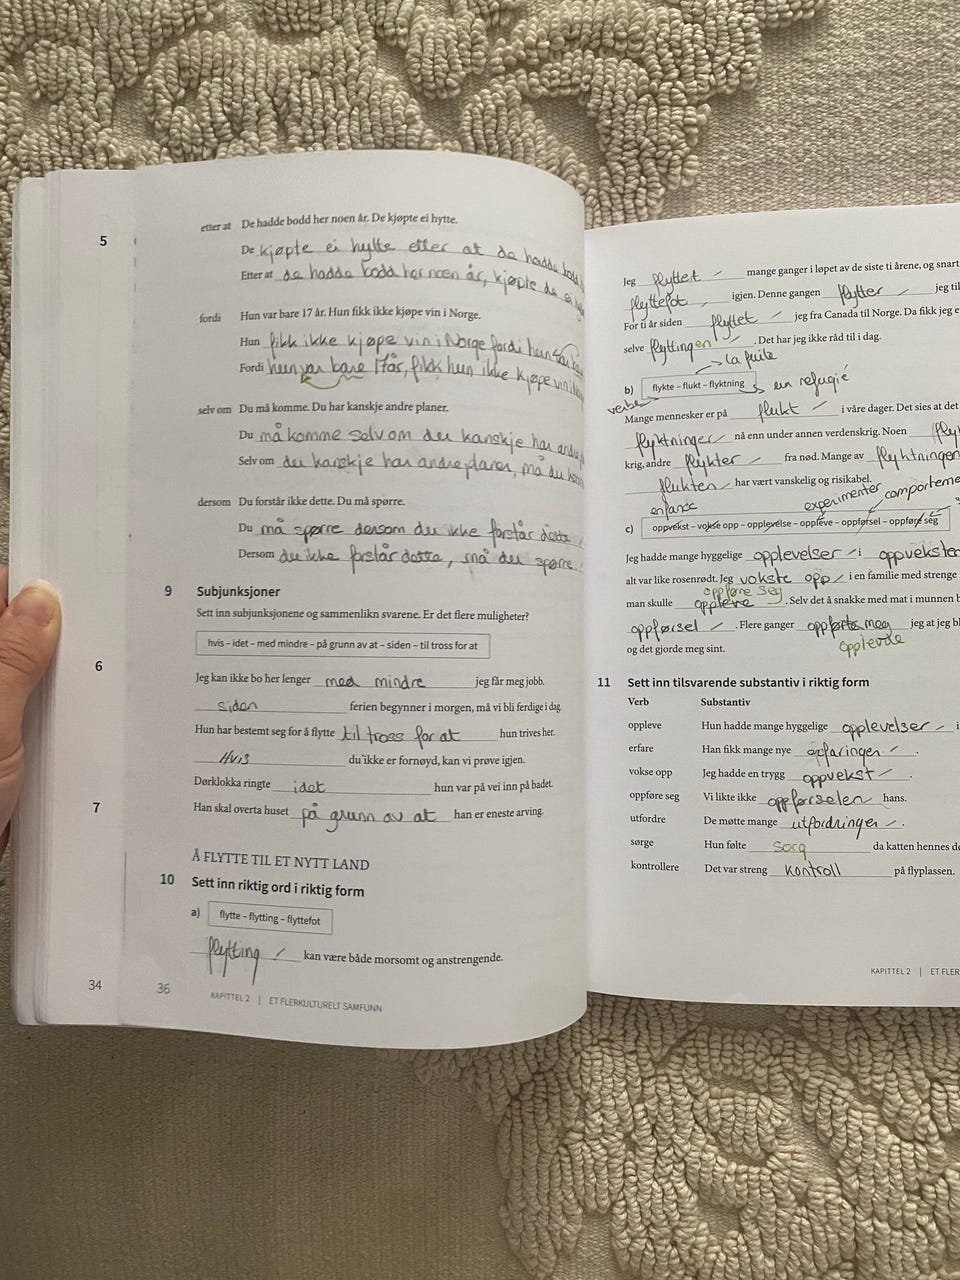 5
etter at De hadde bodd her noen år. De kjøpte ei hytte.
De kjøpte ei hytte etter at de hadde bodd
Etter at de hadde bodd her noen år, kjøpte de ei
fordi Hun var bare 17 år. Hun fikk ikke kjøpe vin i Norge.
Hun fikk ikke kjøpe vin i Norge fordi hun var bare
Fordi hun var bare 17 år, fikk hun ikke kjøpe vin i
selv om Du må komme. Du har kanskje andre planer.
Du må komme selv om du kanskje har andre
Selv om du kanskje har andre planer, må du
dersom Du forstår ikke dette. Du må spørre.
Du må spørre dersom du ikke forstår dette
Dersom du ikke forstår dette, må du spørre
9 Subjunksjoner
Sett inn subjunksjonene og sammenlikn svarene. Er det flere muligheter?
hvis – idet – med mindre – på grunn av at – siden – til tross for at
6
Jeg kan ikke bo her lenger med mindre jeg får meg jobb.
siden ferien begynner i morgen, må vi bli ferdige i dag.
Hun har bestemt seg for å flytte til tross for at hun trives her.
Hvis du ikke er fornøyd, kan vi prøve igjen.
Dørklokka ringte idet hun var på vei inn på badet.
7
Han skal overta huset på grunn av at han er eneste arving.
Å FLYTTE TIL ET NYTT LAND
10 Sett inn riktig ord i riktig form
a) flytte – flytting – flyttefot
flytting kan være både morsomt og anstrengende.
34
36 KAPITTEL 2 | ET FLERKULTURELT SAMFUNN
Jeg flyttet mange ganger i løpet av de siste ti årene, og snart
flyttefot igjen. Denne gangen flytter jeg til
For ti år siden flyttet jeg fra Canada til Norge. Da fikk jeg
selve flyttingen . Det har jeg ikke råd til i dag.
la fuite
b) flykte – flukt – flyktning
un refugié
verbe
Mange mennesker er på flukt i våre dager. Det sies at det
flyktninger nå enn under annen verdenskrig. Noen
krig, andre flykter fra nød. Mange av flyktningen
flukten har vært vanskelig og risikabel.
enfance experimenter comporteme
c) oppvekst – vokse opp – opplevelse – oppleve – oppførsel – oppføre seg
Jeg hadde mange hyggelige opplevelser i oppveksten
alt var like rosenrødt. Jeg vokste opp i en familie med strenge
oppføre seg
man skulle oppleve . Selv det å snakke med mat i munnen
oppførsel . Flere ganger oppførte meg jeg at jeg
opplevde
og det gjorde meg sint.
11 Sett inn tilsvarende substantiv i riktig form
Verb Substantiv
oppleve Hun hadde mange hyggelige opplevelser i
erfare Han fikk mange nye erfaringer .
vokse opp Jeg hadde en trygg oppvekst .
oppføre seg Vi likte ikke oppførselen hans.
utfordre De møtte mange utfordringer .
sørge Hun følte sorg da katten hennes
kontrollere Det var streng kontroll på flyplassen.
KAPITTEL 2 | ET FLER